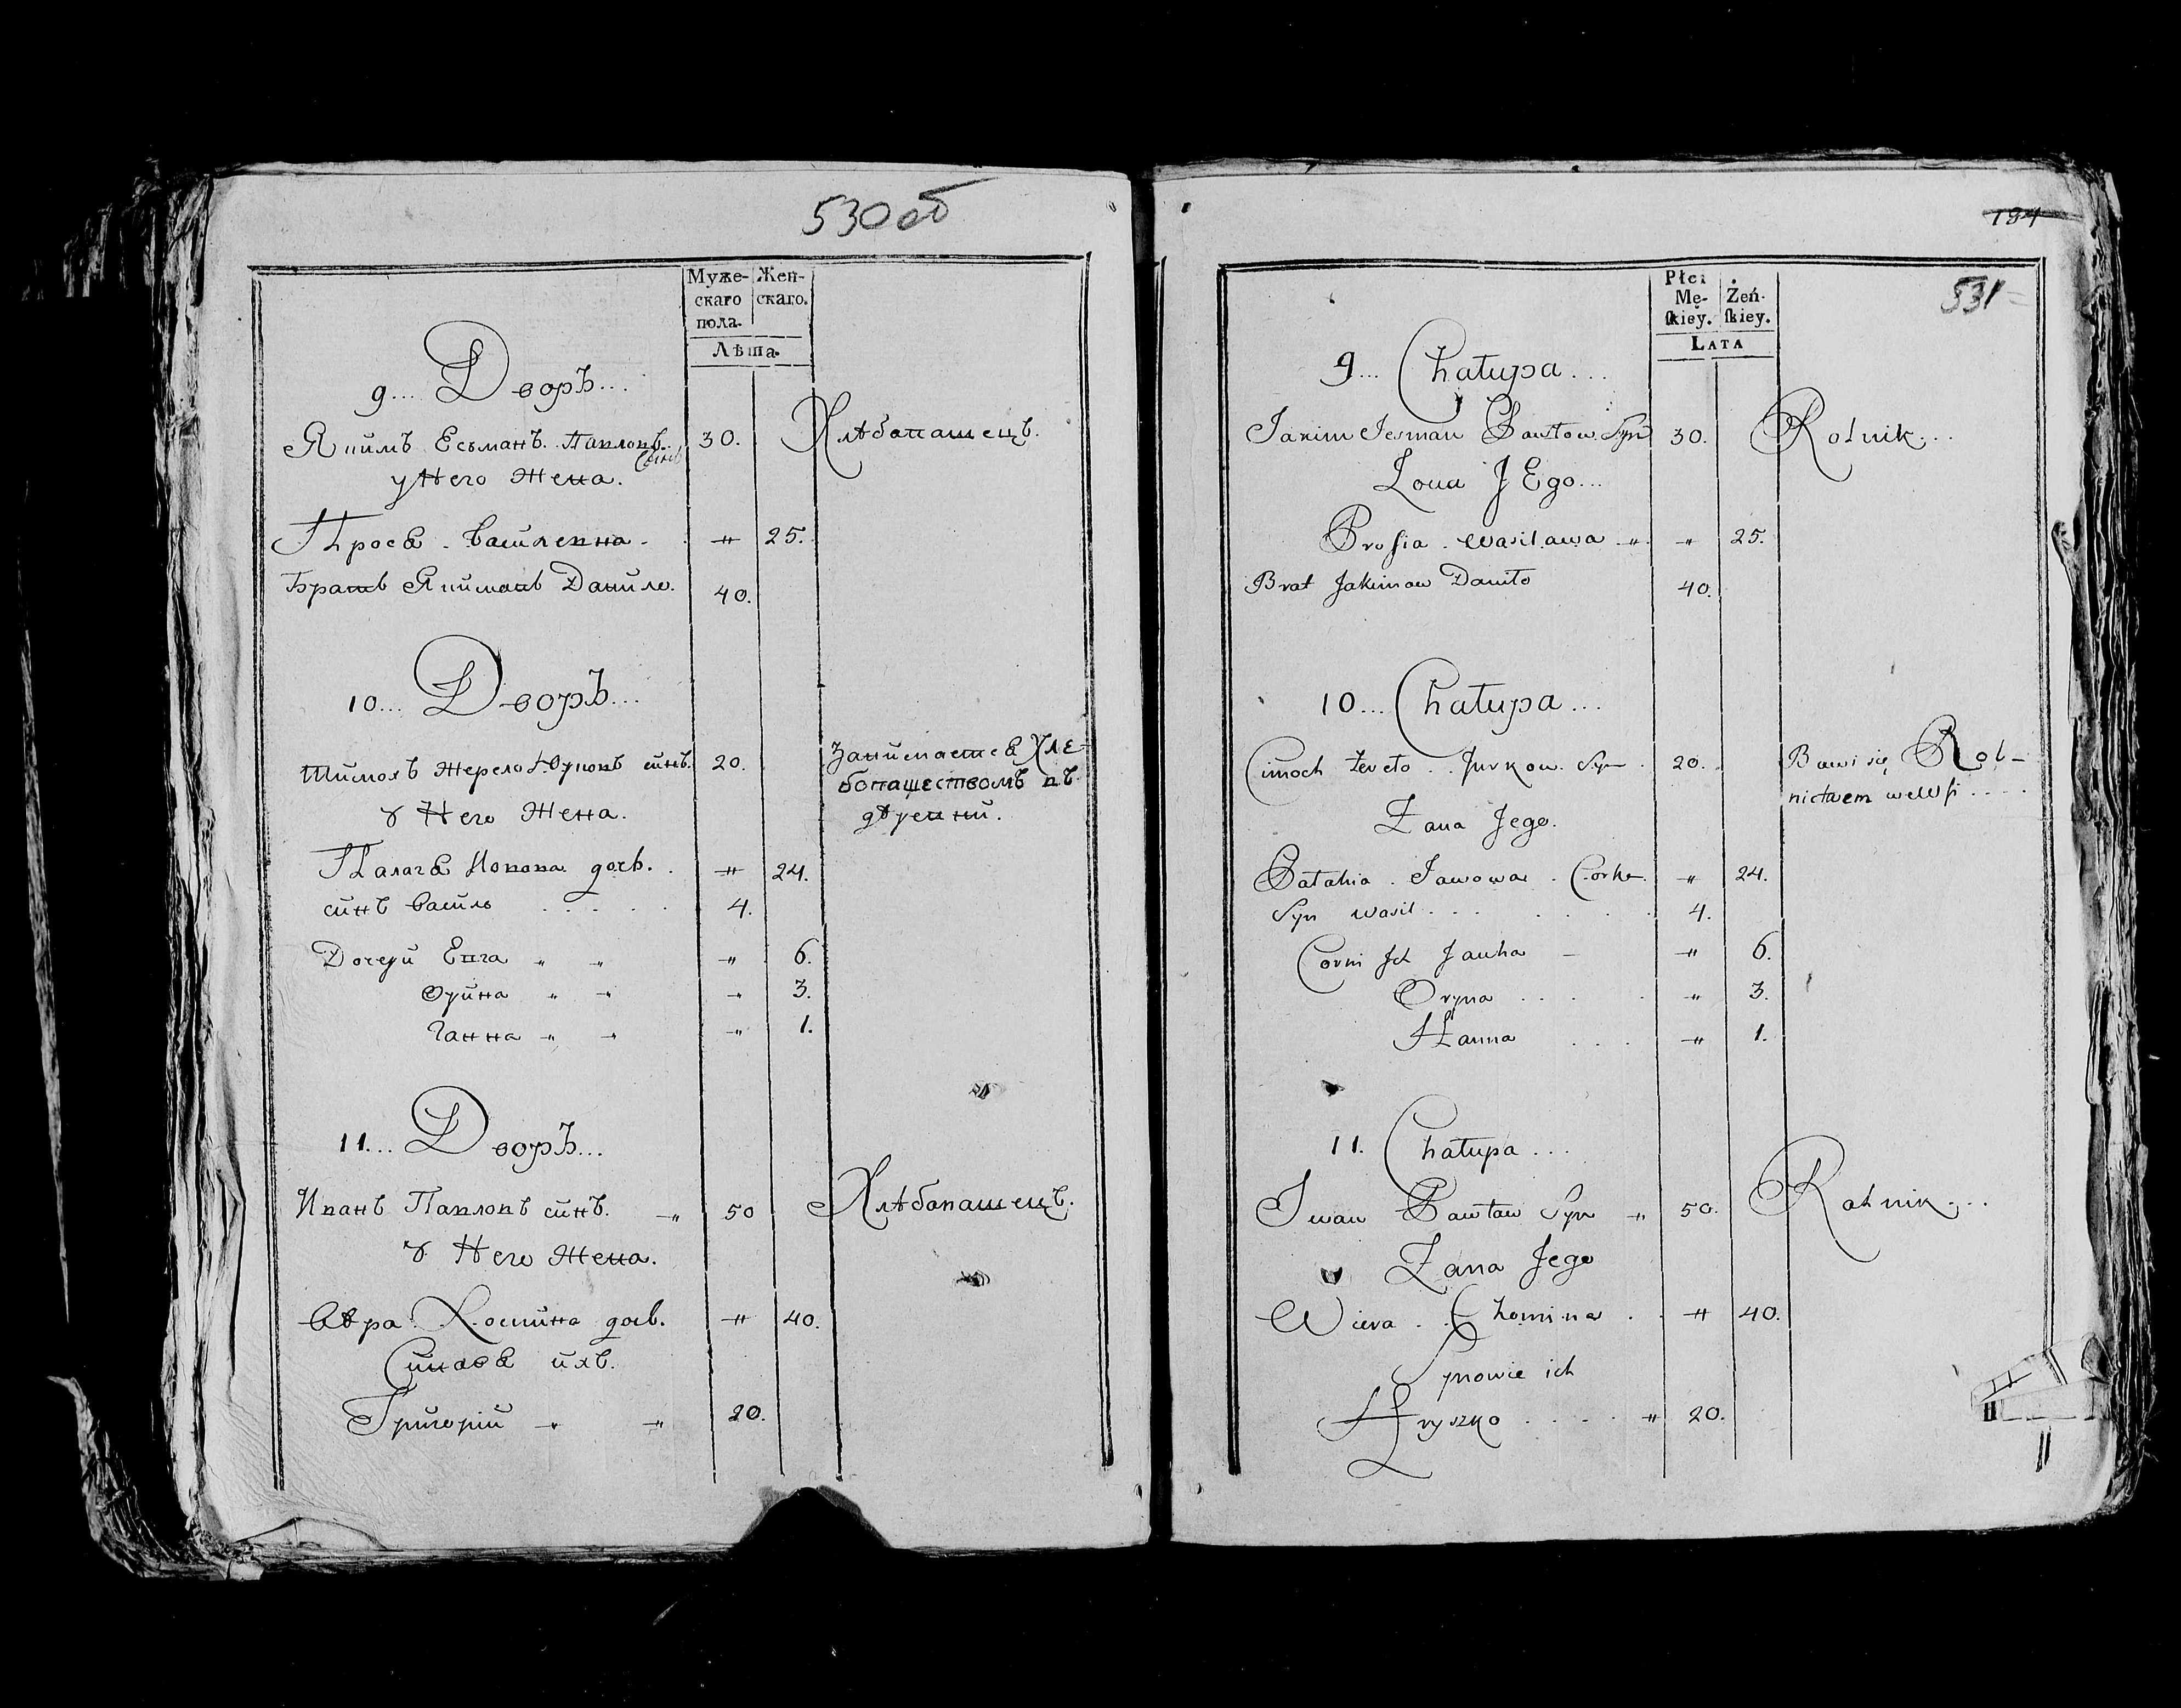 530 об
Муже-
скаго
пола.
Жен-
скаго.
Лѣта.
9... Дворъ...
Якимъ Есьманъ. Павловъ. 30. Хлѣбопашецъ.
Сынъ
у Него Жена.
Прося. Василевна - " 25.
Братъ Якимовъ Данило. 40.
10... Дворъ...
Тимохъ Жерело Юрковъ синъ. 20. Занимается Хле-
бопашествомъ въ
дѣревни.
У Него Жена.
Палагя Иовова дочь. " 24.
синъ Василь . . . . . 4.
Дочери Евга " " " 6.
Орина " " " 3.
Ганна " " " 1.
11... Дворъ...
Иванъ Павловъ синъ. " 50 Хлѣбопашецъ.
У Него Жена.
Вѣра Хомина дочь. " 40.
Синовя ихъ.
Григорий " " 20.
194
531
Płci
Mę-
ſkiey.
Żeń-
ſkiey.
LATA
9... Chałupa...
Jakim Jesman Pawłow Syn 30. Rolnik...
Zona JEgo...
Prosia. Wasilawa " " 25.
Brat Jakimow Daniło 40.
10... Chałupa...
Cimoch Żereło.. Jurkow. Syn. 20. Bawi się Rol-
nictwem we Wsi....
Zana Jego.
Pałahia. Jawowa. Corka. " 24.
Syn Wasil... . . . . 4.
Corki Ich Jauha - " 6.
Oryna . . . . " 3.
Hanna . . . " 1.
11. Chałupa...
Iwan Pawław Syn " 50. Rolnik...
Zana Jego
Wiera.. Chomina . . " 40.
Synowie ich
Hryszko . . . . . " 20.